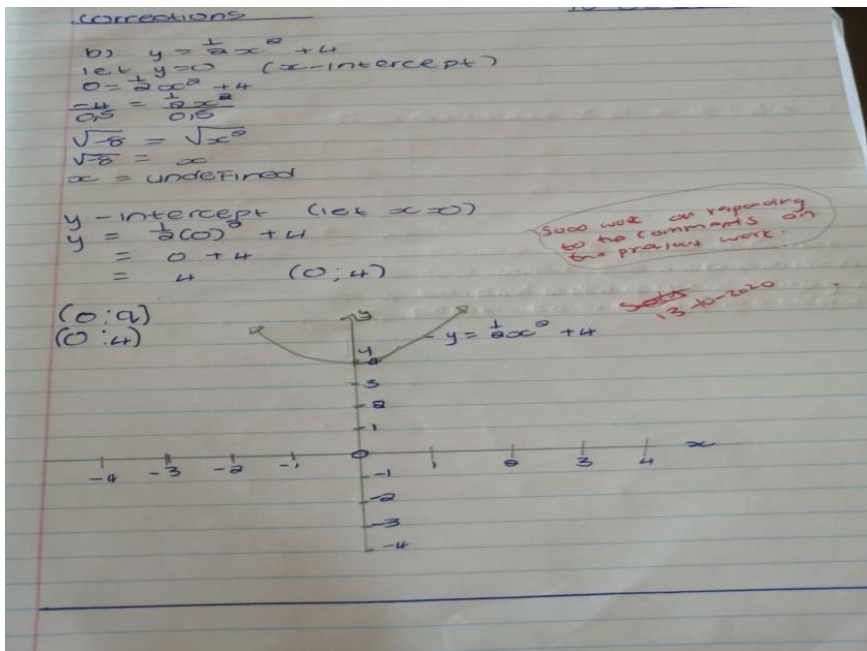 corrections
b) y = ½x² + 4
let y=0 (x-intercept)
0 = ½x² + 4
-4/0,5 = ½x²/0,5
√-8 = √x²
√-8 = x
x = undefined
y-intercept (let x=0)
y = ½(0)² + 4
= 0 + 4
= 4 (0;4)
Good work on responding
to the comments on
the previous work.
13-10-2020
(0;q)
(0;4)
y
y = ½x² + 4
4
3
2
1
-4 -3 -2 -1 0 1 2 3 4 x
-1
-2
-3
-4